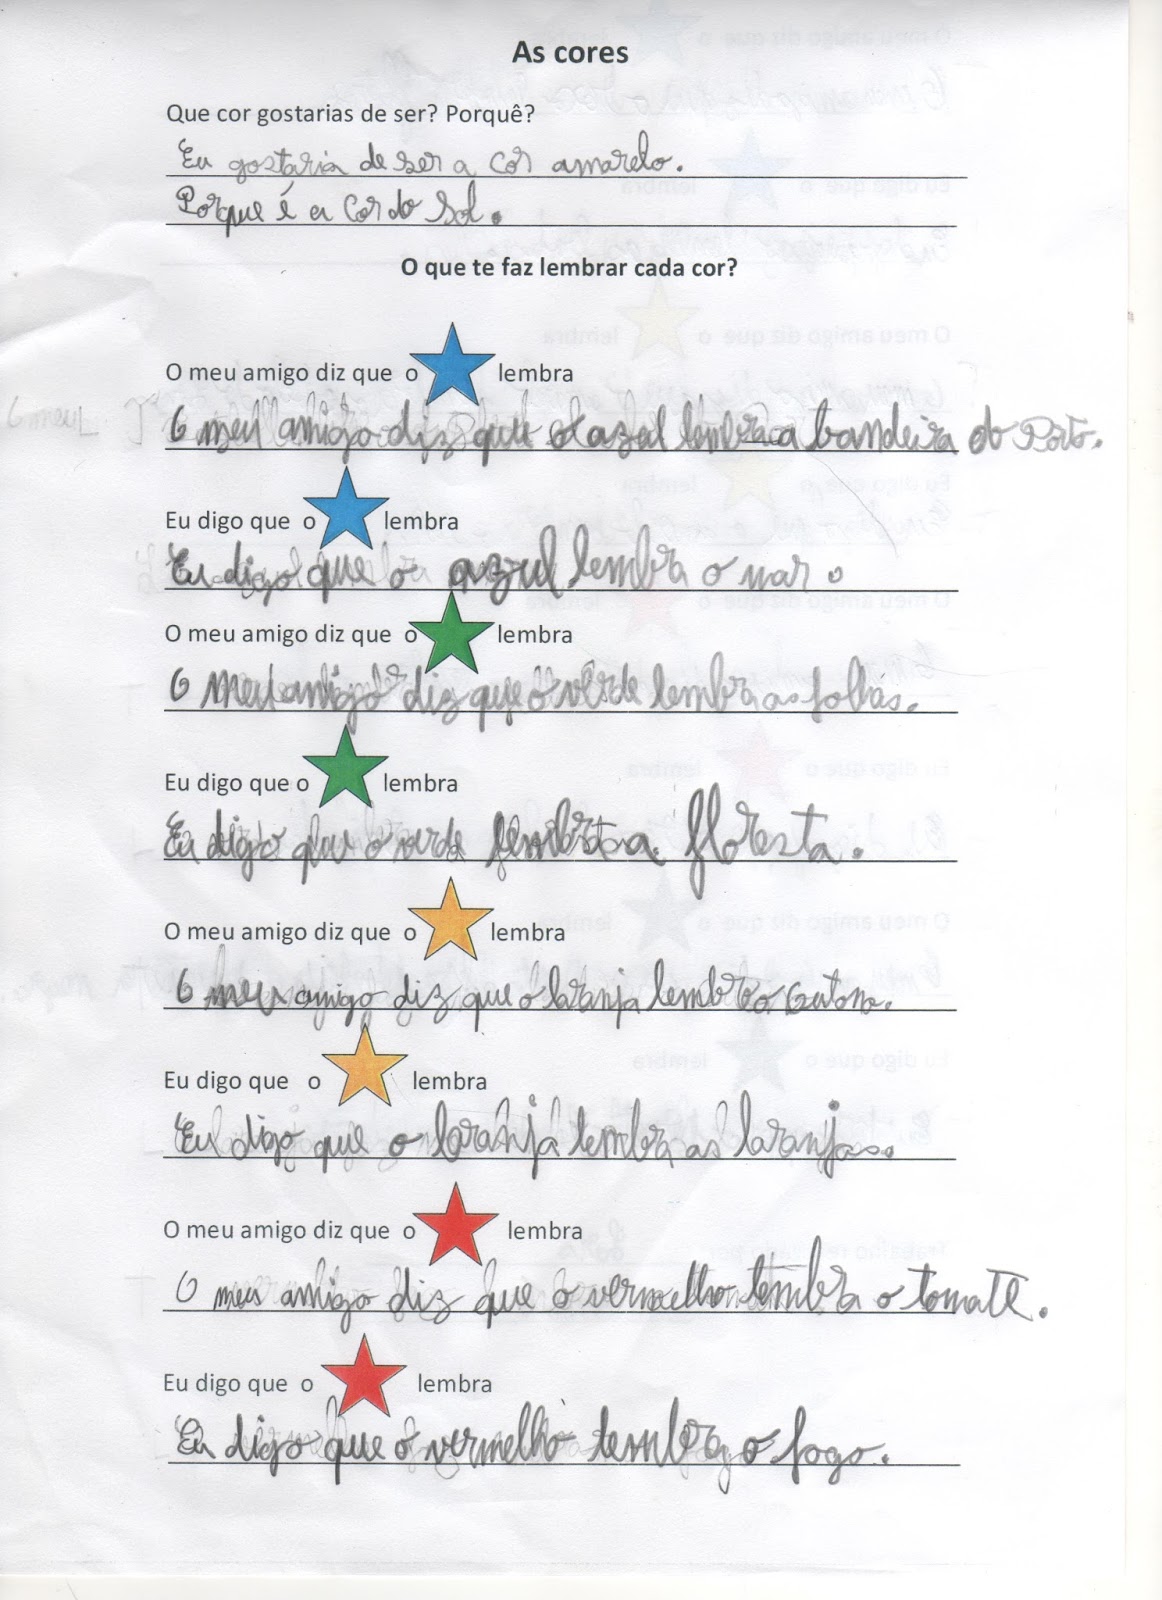 As cores
Que cor gostarias de ser? Porquê?
Eu gostaria de ser a cor amarelo.
Porque é a cor do sol.
O que te faz lembrar cada cor?
O meu amigo diz que o lembra
O meu amigo diz que o azul lembra a bandeira do Porto.
Eu digo que o lembra
Eu digo que o azul lembra o mar.
O meu amigo diz que o lembra
O meu amigo diz que o verde lembra as folhas.
Eu digo que o lembra
Eu digo que o verde lembra a floresta.
O meu amigo diz que o lembra
O meu amigo diz que o laranja lembra o
Eu digo que o lembra
Eu digo que o laranja lembra as laranjas.
O meu amigo diz que o lembra
O meu amigo diz que o vermelho lembra o tomate.
Eu digo que o lembra
Eu digo que o vermelho lembra o fogo.